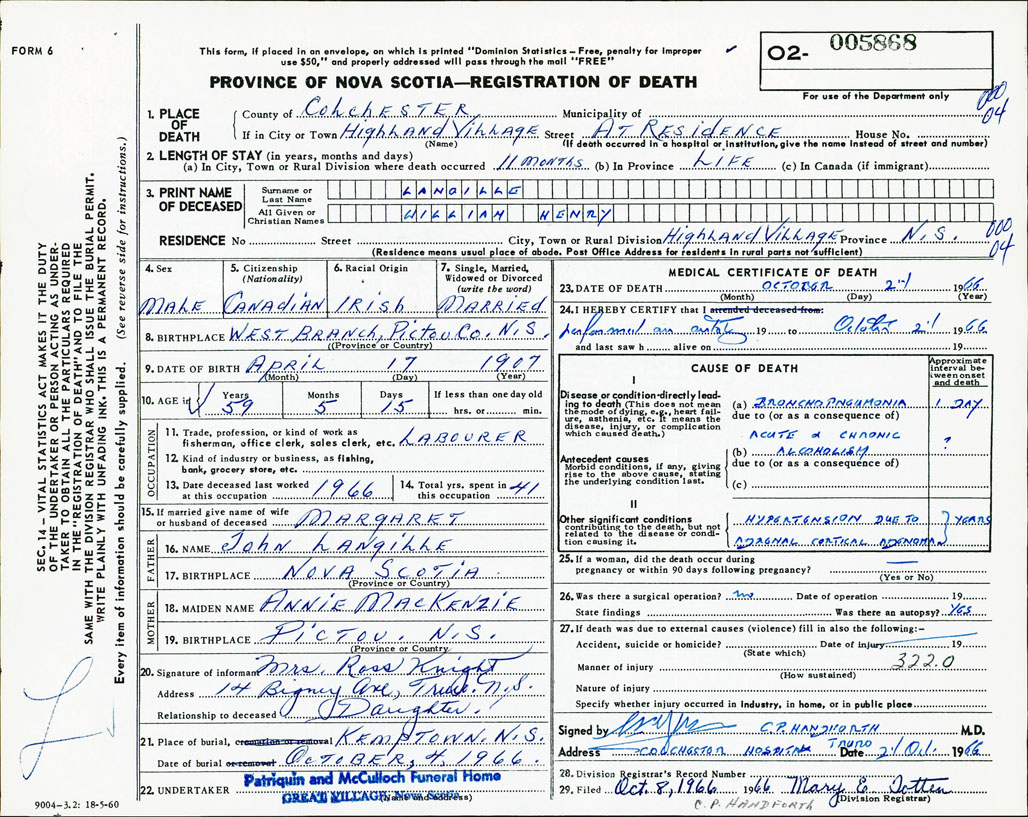 FORM 6
This form, if placed in an envelope, on which is printed "Dominion Statistics – Free, penalty for improper
use $50," and properly addressed will pass through the mail "FREE"
02- 005868
For use of the Department only
PROVINCE OF NOVA SCOTIA—REGISTRATION OF DEATH
000
04
1. PLACE OF DEATH
County of COLCHESTER Municipality of
If in City or Town HIGHLAND VILLAGE Street AT RESIDENCE House No.
(Name) (If death occurred in a hospital or institution, give the name instead of street and number)
2. LENGTH OF STAY (in years, months and days)
(a) In City, Town or Rural Division where death occurred 11 MONTHS (b) In Province LIFE (c) In Canada (if immigrant)
3. PRINT NAME OF DECEASED
Surname or Last Name LANGILLE
All Given or Christian Names WILLIAM HENRY
000
04
RESIDENCE No Street City, Town or Rural Division HIGHLAND VILLAGE Province N.S.
(Residence means usual place of abode. Post Office Address for residents in rural parts not sufficient)
4. Sex
MALE
5. Citizenship
(Nationality)
CANADIAN
6. Racial Origin
IRISH
7. Single, Married,
Widowed or Divorced
(write the word)
MARRIED
8. BIRTHPLACE WEST BRANCH, PICTOU CO. N.S.
(Province or Country)
9. DATE OF BIRTH APRIL 17 1907
(Month) (Day) (Year)
10. AGE in Years 59 Months 5 Days 15 If less than one day old
hrs. or min.
OCCUPATION
11. Trade, profession, or kind of work as
fisherman, office clerk, sales clerk, etc. LABOURER
12. Kind of industry or business, as fishing,
bank, grocery store, etc.
13. Date deceased last worked
at this occupation 1966
14. Total yrs. spent in
this occupation 41
15. If married give name of wife
or husband of deceased MARGARET
FATHER
16. NAME JOHN LANGILLE
17. BIRTHPLACE NOVA SCOTIA
(Province or Country)
MOTHER
18. MAIDEN NAME ANNIE MACKENZIE
19. BIRTHPLACE PICTOU. N.S.
(Province or Country)
20. Signature of informant Mrs. Ross Knight
Address 14 Bigney Ave, Truro. N.S.
Relationship to deceased Daughter.
21. Place of burial, cremation or removal KEMPTOWN. N.S.
Date of burial or removal OCTOBER, 4, 1966.
22. UNDERTAKER Patriquin and McCulloch Funeral Home
GREAT VILLAGE, Nova Scotia
(Name and address)
MEDICAL CERTIFICATE OF DEATH
23. DATE OF DEATH OCTOBER 2nd 1966
(Month) (Day) (Year)
24. I HEREBY CERTIFY that I attended deceased from:
performed an autopsy 19 to October 2nd 1966
and last saw h alive on 19
CAUSE OF DEATH
Approximate interval between onset and death
I
Disease or condition directly leading to death (This does not mean the mode of dying, e.g., heart failure, asthenia, etc. It means the disease, injury, or complication which caused death.)
(a) BRONCHOPNEUMONIA 1 DAY
due to (or as a consequence of)
ACUTE & CHRONIC
(b) ALCOHOLISM ?
due to (or as a consequence of)
(c)
Antecedent causes
Morbid conditions, if any, giving rise to the above cause, stating the underlying condition last.
II
Other significant conditions
contributing to the death, but not related to the disease or condition causing it.
HYPERTENSION DUE TO YEARS
ADRENAL CORTICAL ADENOMA
25. If a woman, did the death occur during
pregnancy or within 90 days following pregnancy? —
(Yes or No)
26. Was there a surgical operation? no Date of operation 19
State findings Was there an autopsy? YES
27. If death was due to external causes (violence) fill in also the following:-
Accident, suicide or homicide? Date of injury 19
(State which)
322.0
Manner of injury
(How sustained)
Nature of injury
Specify whether injury occurred in industry, in home, or in public place
Signed by C.P. HANDFORTH M.D.
Address COLCHESTER HOSPITAL TRURO Date 1966
28. Division Registrar's Record Number
29. Filed Oct. 8, 1966 1966 Mary E. Totten
(Division Registrar)
C.P. HANDFORTH
SEC. 14 – VITAL STATISTICS ACT MAKES IT THE DUTY
OF THE UNDERTAKER OR PERSON ACTING AS UNDER-
TAKER TO OBTAIN ALL THE PARTICULARS REQUIRED
IN THE "REGISTRATION OF DEATH" AND TO FILE THE
SAME WITH THE DIVISION REGISTRAR WHO SHALL ISSUE THE BURIAL PERMIT.
WRITE PLAINLY WITH UNFADING INK. THIS IS A PERMANENT RECORD.
Every item of information should be carefully supplied. (See reverse side for instructions.)
9004-3.2: 18-5-60